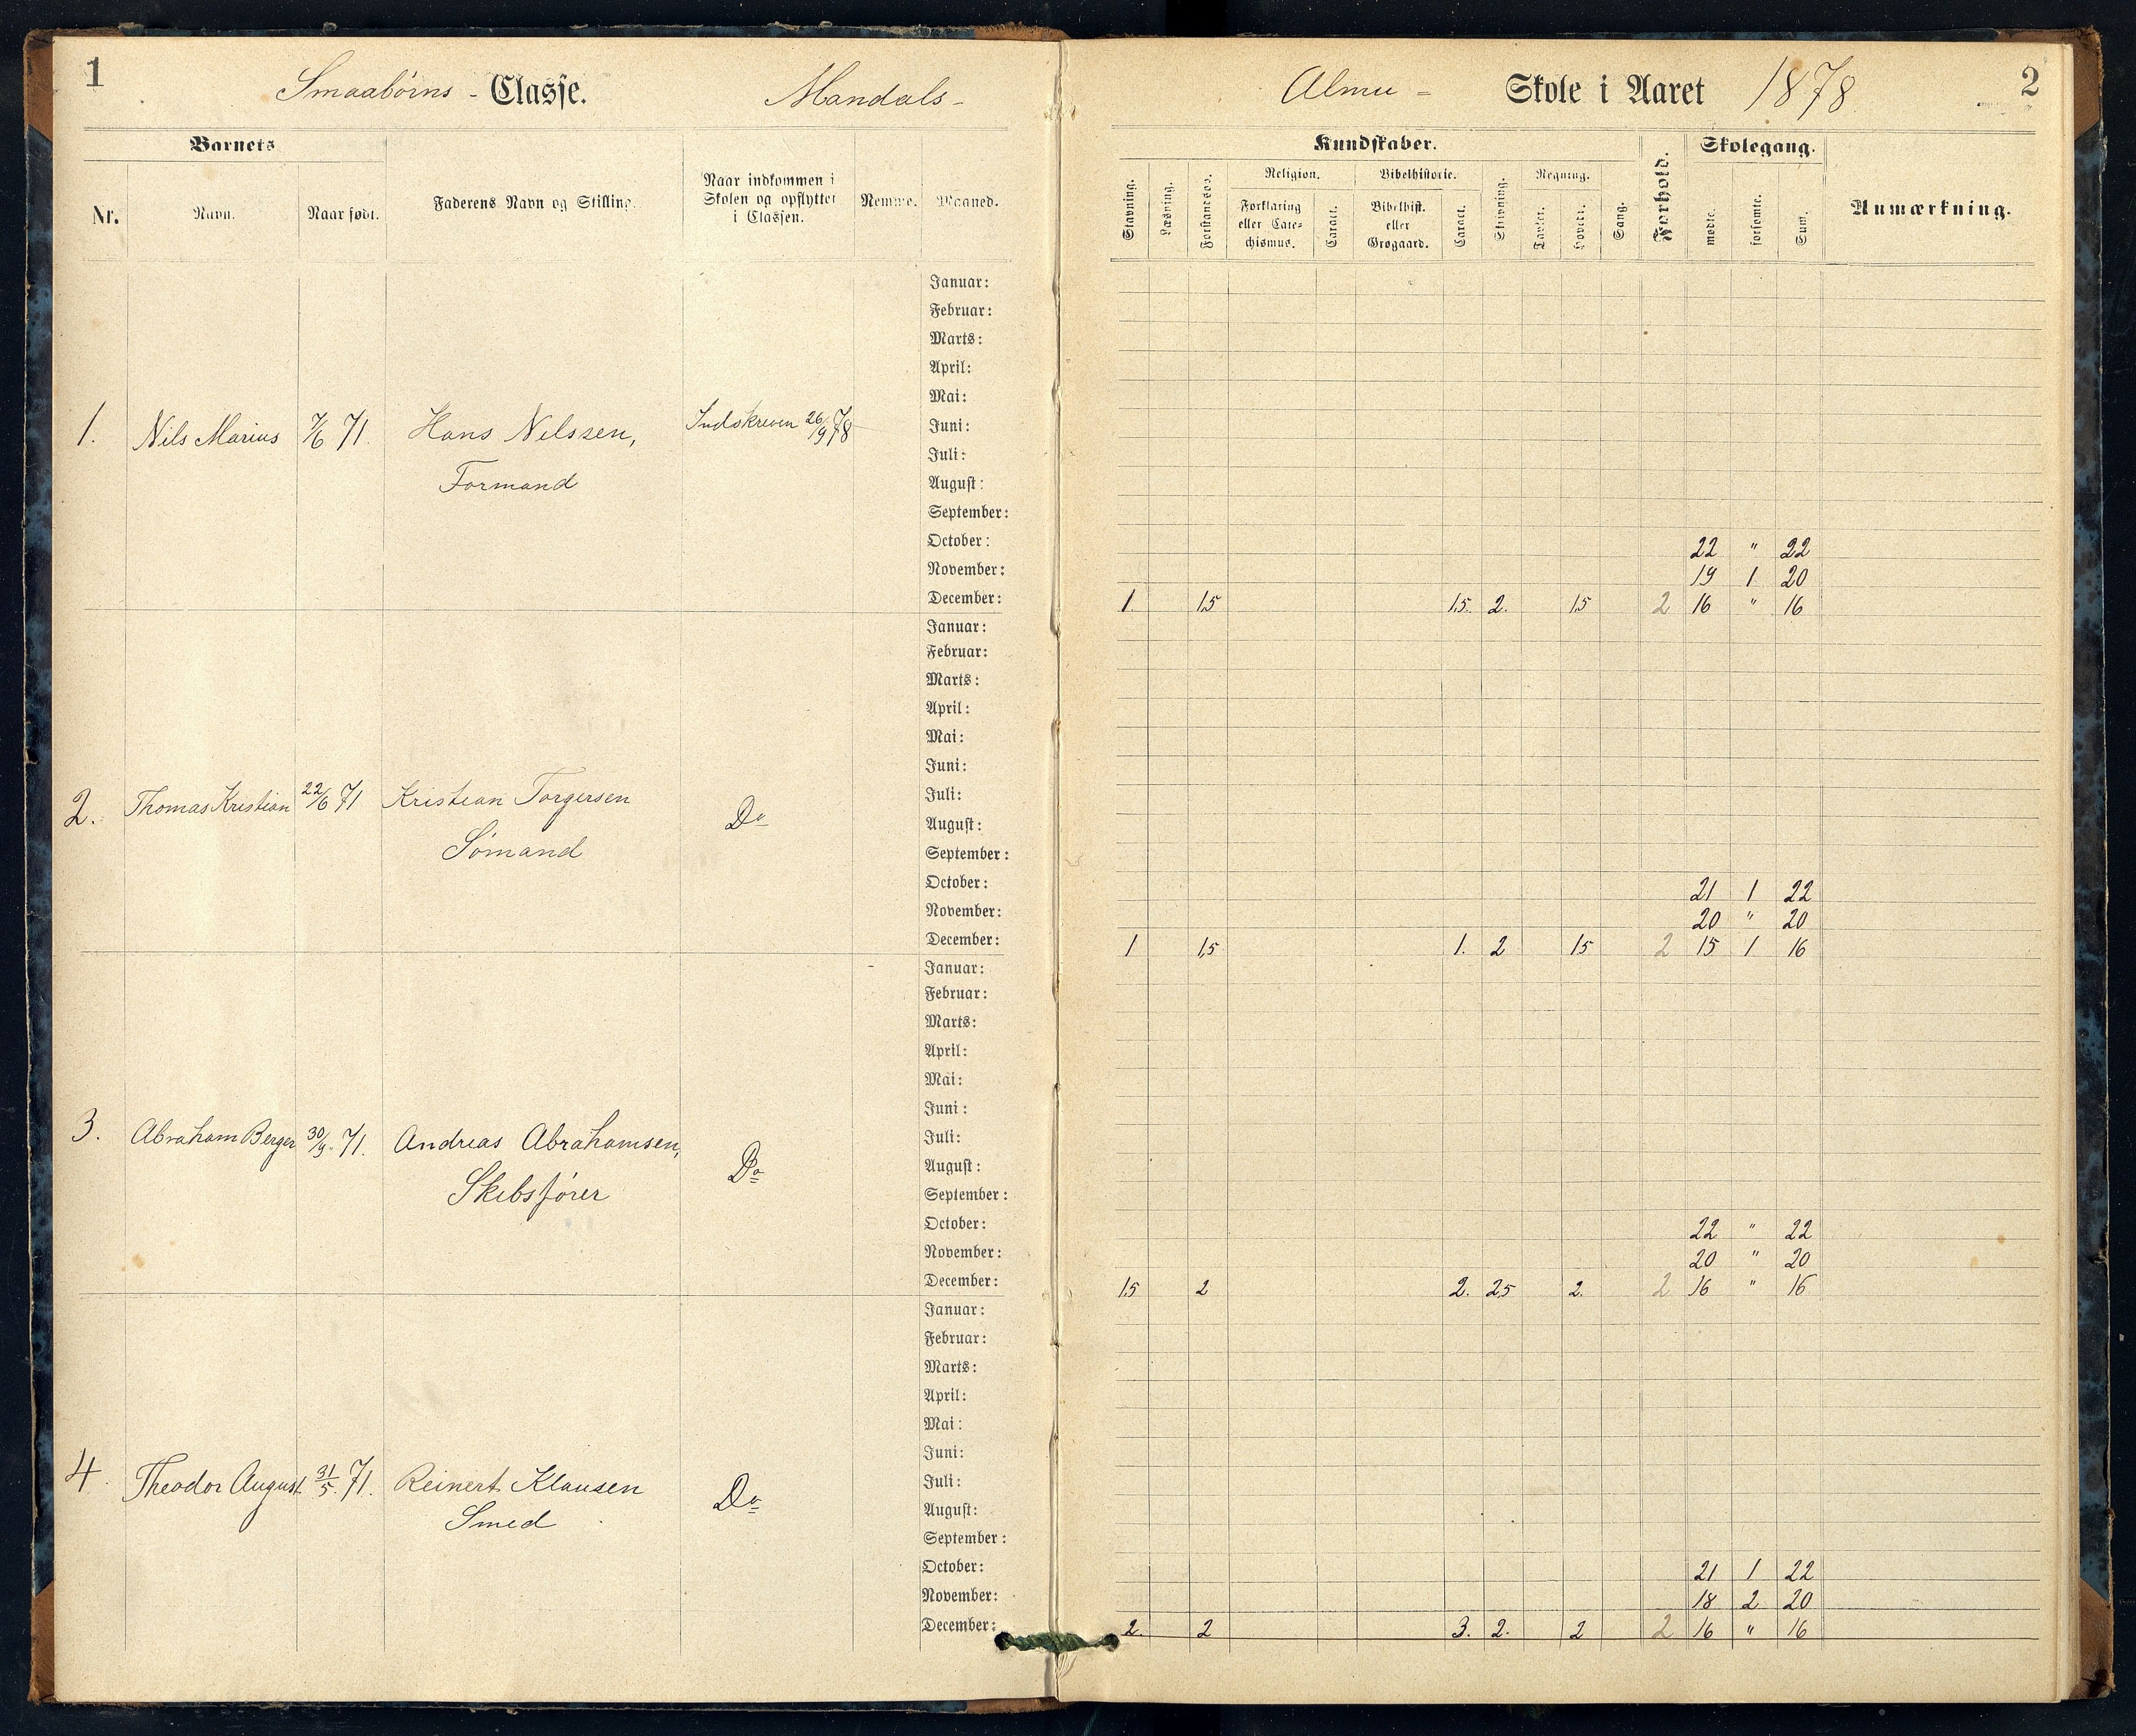 1
Smaabörns - Classe.
Mandals -
Barnets
Nr.
Navn.
Naar født.
Faderens Navn og Stilling.
Naar indkommen i
Skolen og opflyttet
i Classen.
Nemme.
Maaned.
Januar:
Februar:
Marts:
April:
Mai:
1. Nils Marius 7/6 71. Hans Nilssen, Indskreven 26/9 78 Juni:
Juli:
Formand August:
September:
October:
November:
December:
Januar:
Februar:
Marts:
April:
Mai:
Juni:
2. Thomas Kristian 22/6 71 Kristian Torgersen Juli:
Do August:
Sömand September:
October:
November:
December:
Januar:
Februar:
Marts:
April:
Mai:
Juni:
3. Abraham Berger 30/9. 71. Andreas Abrahamsen, Juli:
Do August:
Skibsförer September:
October:
November:
December:
Januar:
Februar:
Marts:
April:
Mai:
Juni:
4 Theodor August. 31/5. 71. Reinert Klausen Do Juli:
Smed August:
September:
October:
November:
December:
Almu - Skole i Aaret 1878.
2
Kundskaber.
Forhold.
Skolegang.
Anmærkning.
Stavning.
Læsning.
Forstandsøv.
Religion.
Forklaring
eller Cate-
chismus.
Caract.
Bibelhistorie.
Bibelhist.
eller
Grøgaard.
Caract.
Skrivning.
Regning.
Tavler.
Hoved.
Sang.
mødte.
forsømte.
Sum.
22 " 22
19 1 20
1. 1,5 1,5. 2. 1,5 2 16 " 16
21 1 22
20 " 20
1 1,5 1. 2 15 2 15 1 16
22 " 22
20 " 20
1,5 2 2. 2,5 2. 2 16 " 16
21 1 22
18 2 20
2. 2 3. 2. 2 2 16 " 16